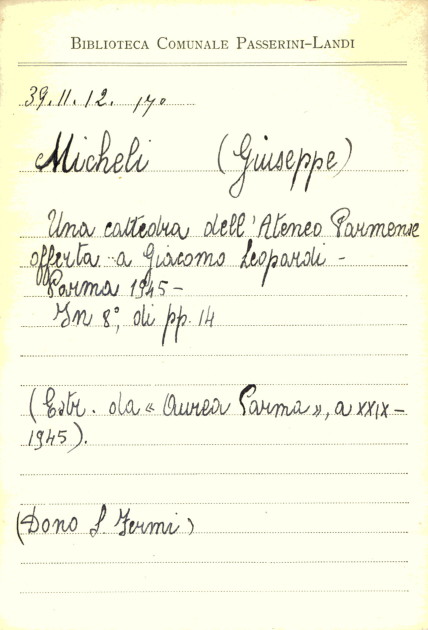 BIBLIOTECA COMUNALE PASSERINI-LANDI
39.11.12. 170
Micheli (Giuseppe)
Una cattedra dell'Ateneo Parmense
offerta a Giacomo Leopardi -
Parma 1945 -
In 8°, di pp. 14
(Estr. da « Aurea Parma », a XXIX -
1945).
(Dono S. Fermi)